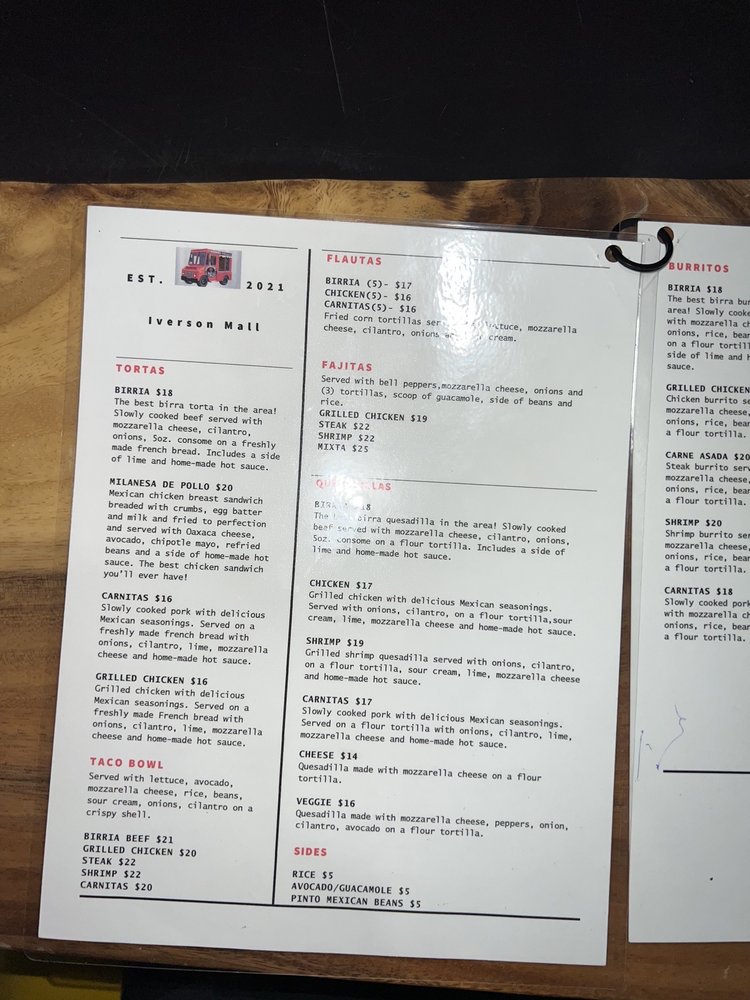 EST. 2021
Iverson Mall
TORTAS
BIRRIA $18
The best birra torta in the area!
Slowly cooked beef served with
mozzarella cheese, cilantro,
onions, 5oz. consome on a freshly
made french bread. Includes a side
of lime and home-made hot sauce.
MILANESA DE POLLO $20
Mexican chicken breast sandwich
breaded with crumbs, egg batter
and milk and fried to perfection
and served with Oaxaca cheese,
avocado, chipotle mayo, refried
beans and a side of home-made hot
sauce. The best chicken sandwich
you'll ever have!
CARNITAS $16
Slowly cooked pork with delicious
Mexican seasonings. Served on a
freshly made french bread with
onions, cilantro, lime, mozzarella
cheese and home-made hot sauce.
GRILLED CHICKEN $16
Grilled chicken with delicious
Mexican seasonings. Served on a
freshly made French bread with
onions, cilantro, lime, mozzarella
cheese and home-made hot sauce.
TACO BOWL
Served with lettuce, avocado,
mozzarella cheese, rice, beans,
sour cream, onions, cilantro on a
crispy shell.
BIRRIA BEEF $21
GRILLED CHICKEN $20
STEAK $22
SHRIMP $22
CARNITAS $20
FLAUTAS
BIRRIA (5)- $17
CHICKEN(5)- $16
CARNITAS(5)- $16
Fried corn tortillas mozzarella
cheese, cilantro, onions cream.
FAJITAS
Served with bell peppers,mozzarella cheese, onions and
(3) tortillas, scoop of guacamole, side of beans and
rice.
GRILLED CHICKEN $19
STEAK $22
SHRIMP $22
MIXTA $25
The birra quesadilla in the area! Slowly cooked
beef served with mozzarella cheese, cilantro, onions,
5oz. consome on a flour tortilla. Includes a side of
lime and home-made hot sauce.
CHICKEN $17
Grilled chicken with delicious Mexican seasonings.
Served with onions, cilantro, on a flour tortilla,sour
cream, lime, mozzarella cheese and home-made hot sauce.
SHRIMP $19
Grilled shrimp quesadilla served with onions, cilantro,
on a flour tortilla, sour cream, lime, mozzarella cheese
and home-made hot sauce.
CARNITAS $17
Slowly cooked pork with delicious Mexican seasonings.
Served on a flour tortilla with onions, cilantro, lime,
mozzarella cheese and home-made hot sauce.
CHEESE $14
Quesadilla made with mozzarella cheese on a flour
tortilla.
VEGGIE $16
Quesadilla made with mozzarella cheese, peppers, onion,
cilantro, avocado on a flour tortilla.
SIDES
RICE $5
AVOCADO/GUACAMOLE $5
PINTO MEXICAN BEANS $5
BURRITOS
BIRRIA $18
The best birra
area! Slowly
with mozzarella
onions, rice,
on a flour
side of lime and
sauce.
GRILLED CHICKEN
Chicken burrito
mozzarella cheese,
onions, rice,
a flour tortilla.
CARNE ASADA $20
Steak burrito
mozzarella cheese,
onions, rice,
a flour tortilla.
SHRIMP $20
Shrimp burrito
mozzarella cheese,
onions, rice,
a flour tortilla.
CARNITAS $18
Slowly cooked pork
with mozzarella
onions, rice,
a flour tortilla.